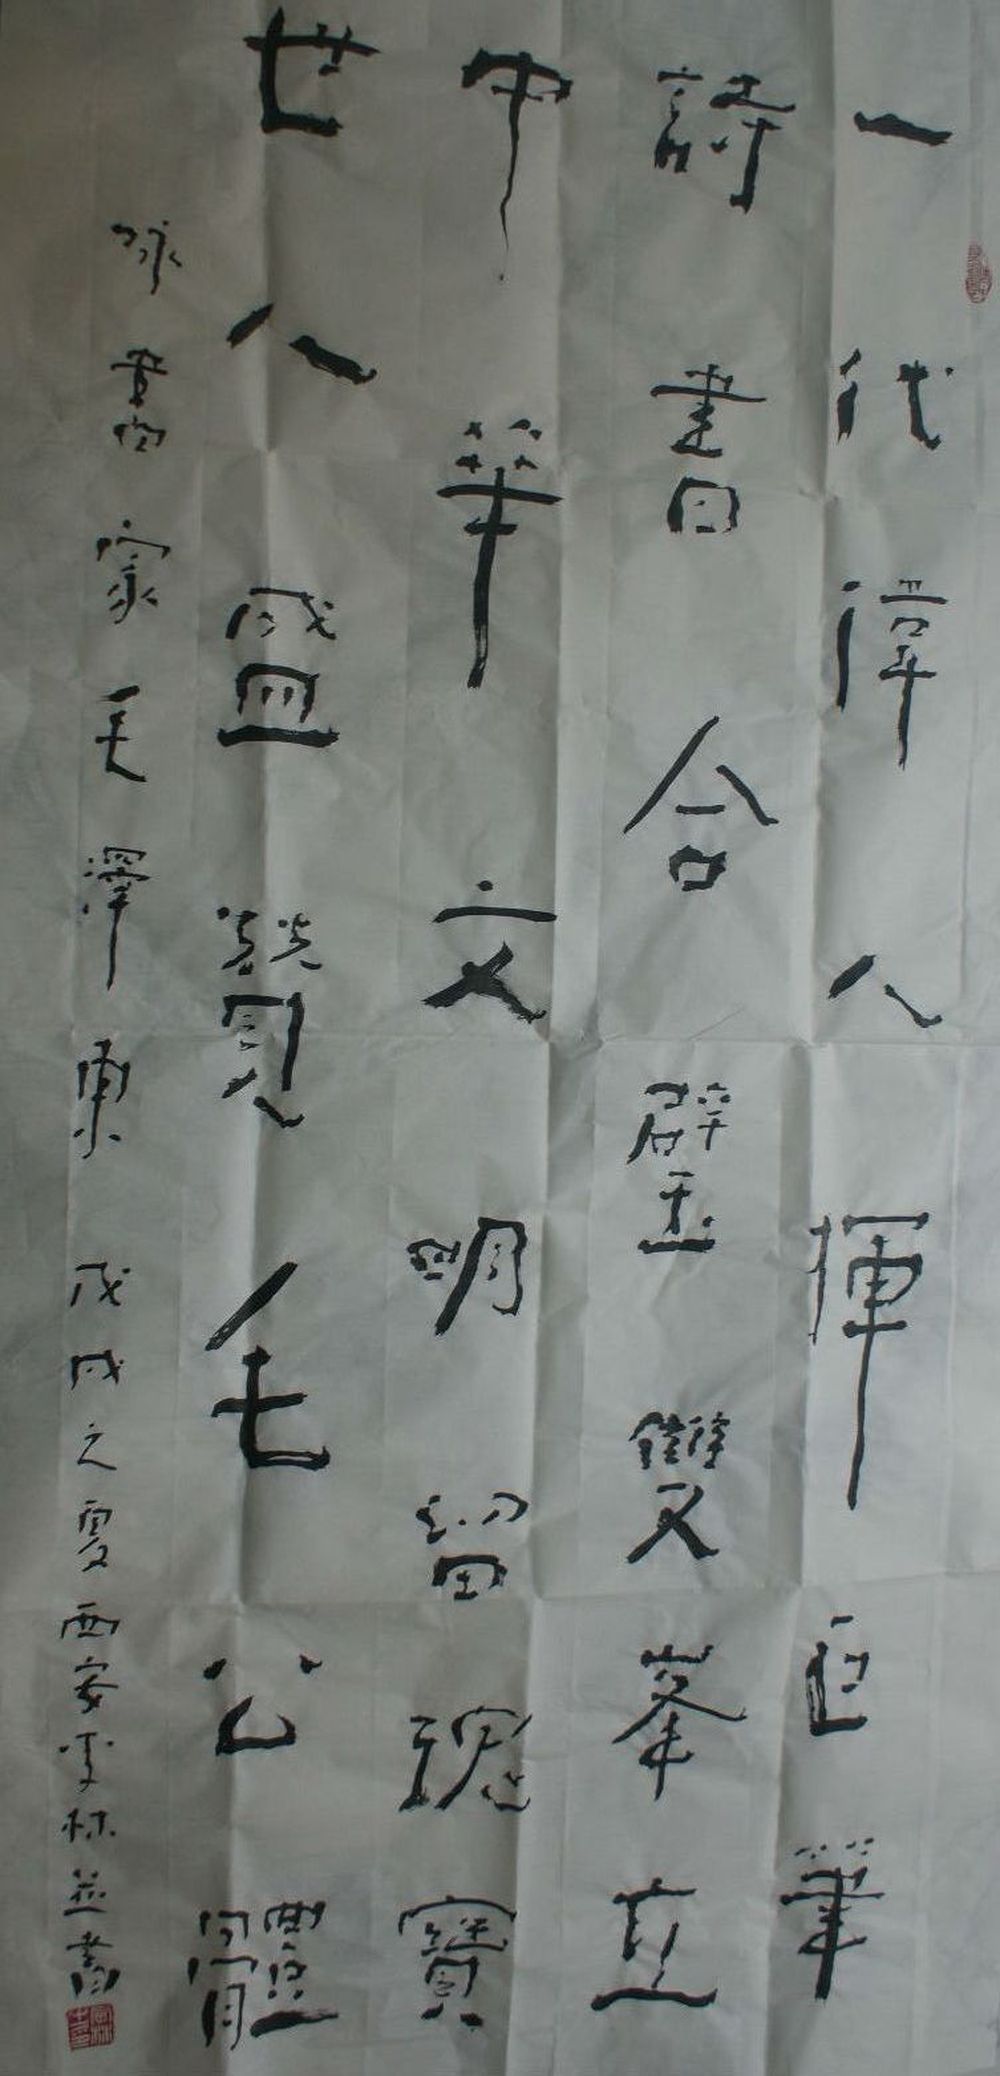 一代偉人揮巨筆
詩書合璧雙峯立
中華文明留瑰寶
世人盛贊毛公體
咏書家毛澤東 戊戌之夏西安 林并書